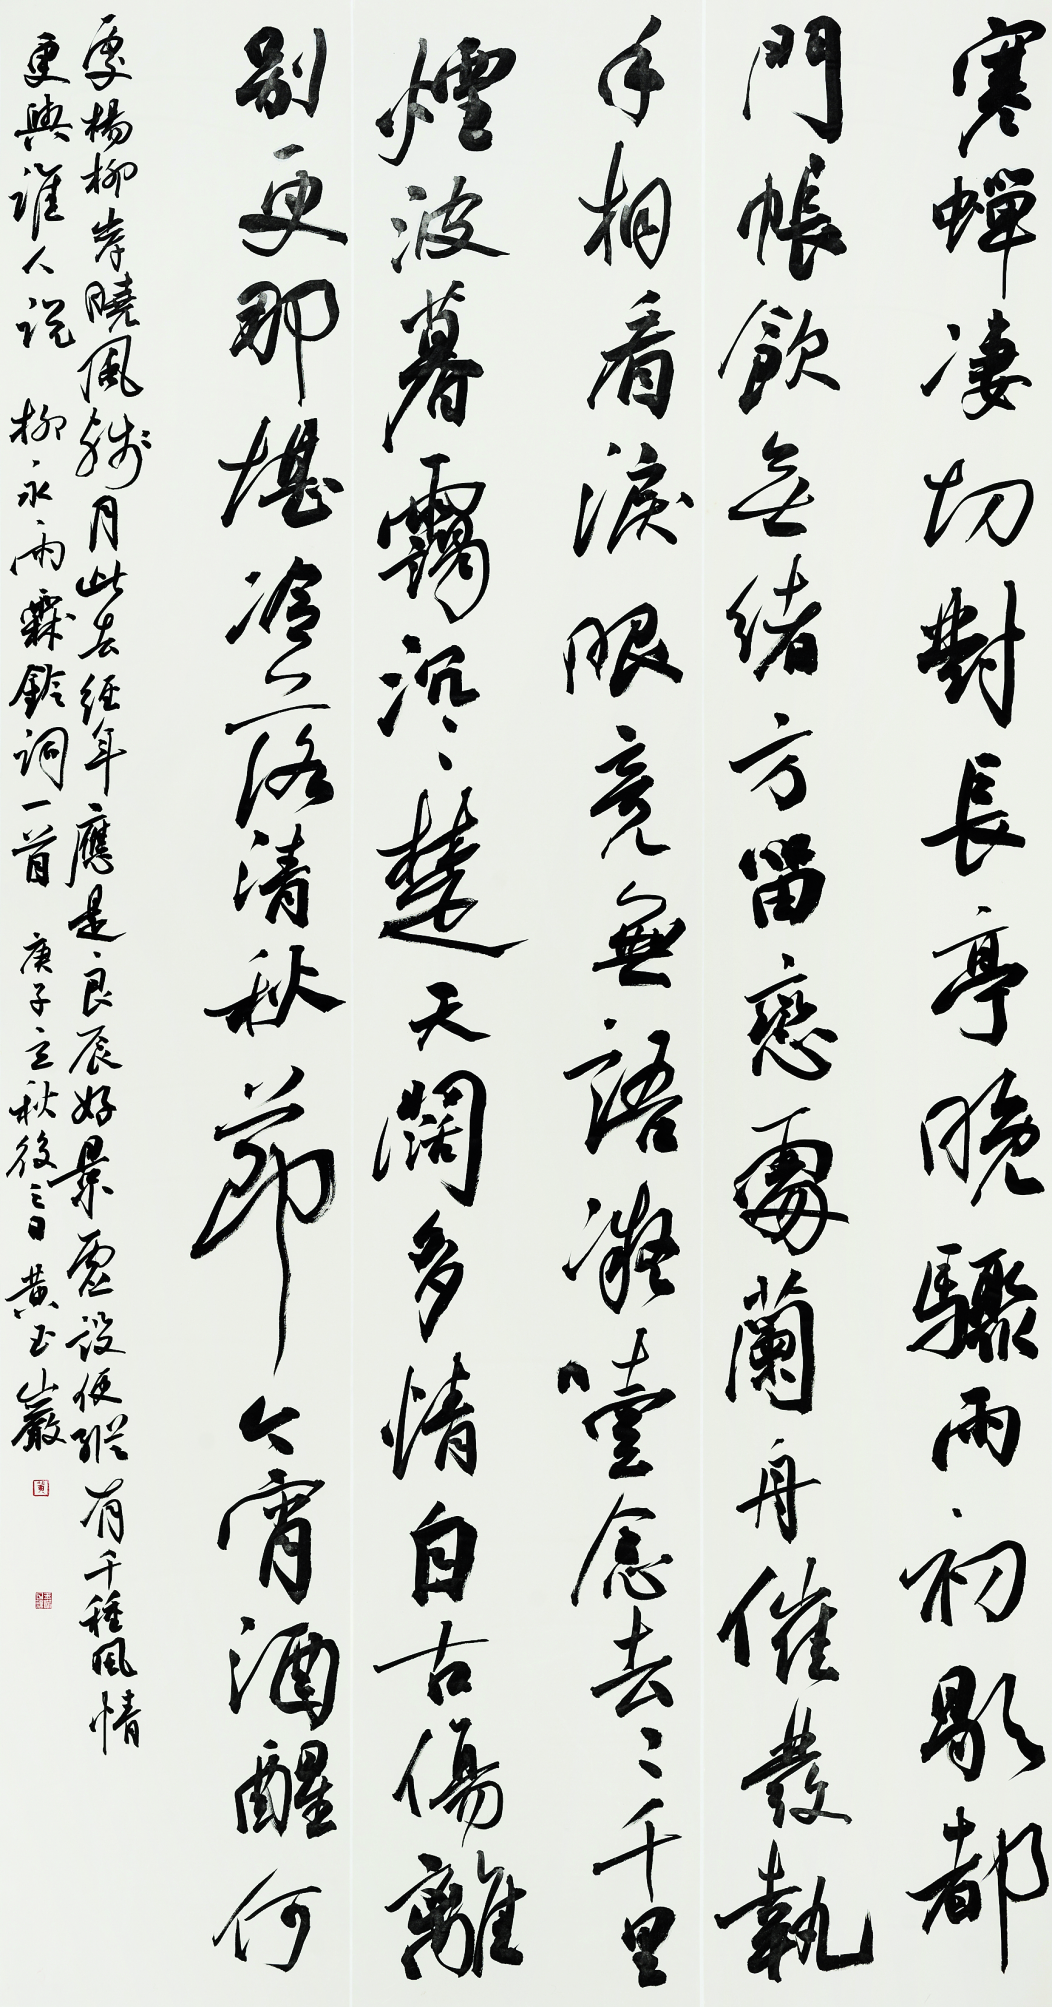 寒蟬凄切對長亭晚驟雨初歇都
門帳飲無緒方留戀處蘭舟催發執
手相看淚眼竟無語凝噎念去〻千里
煙波暮靄沉〻楚天闊多情自古傷離
別更那堪冷落清秋節今宵酒醒何
處楊柳岸曉風殘月此去經年應是良辰好景虛設便縱有千種風情
更與誰人說 柳永雨霖鈴詞一首 庚子立秋後三日 黃玉山嚴